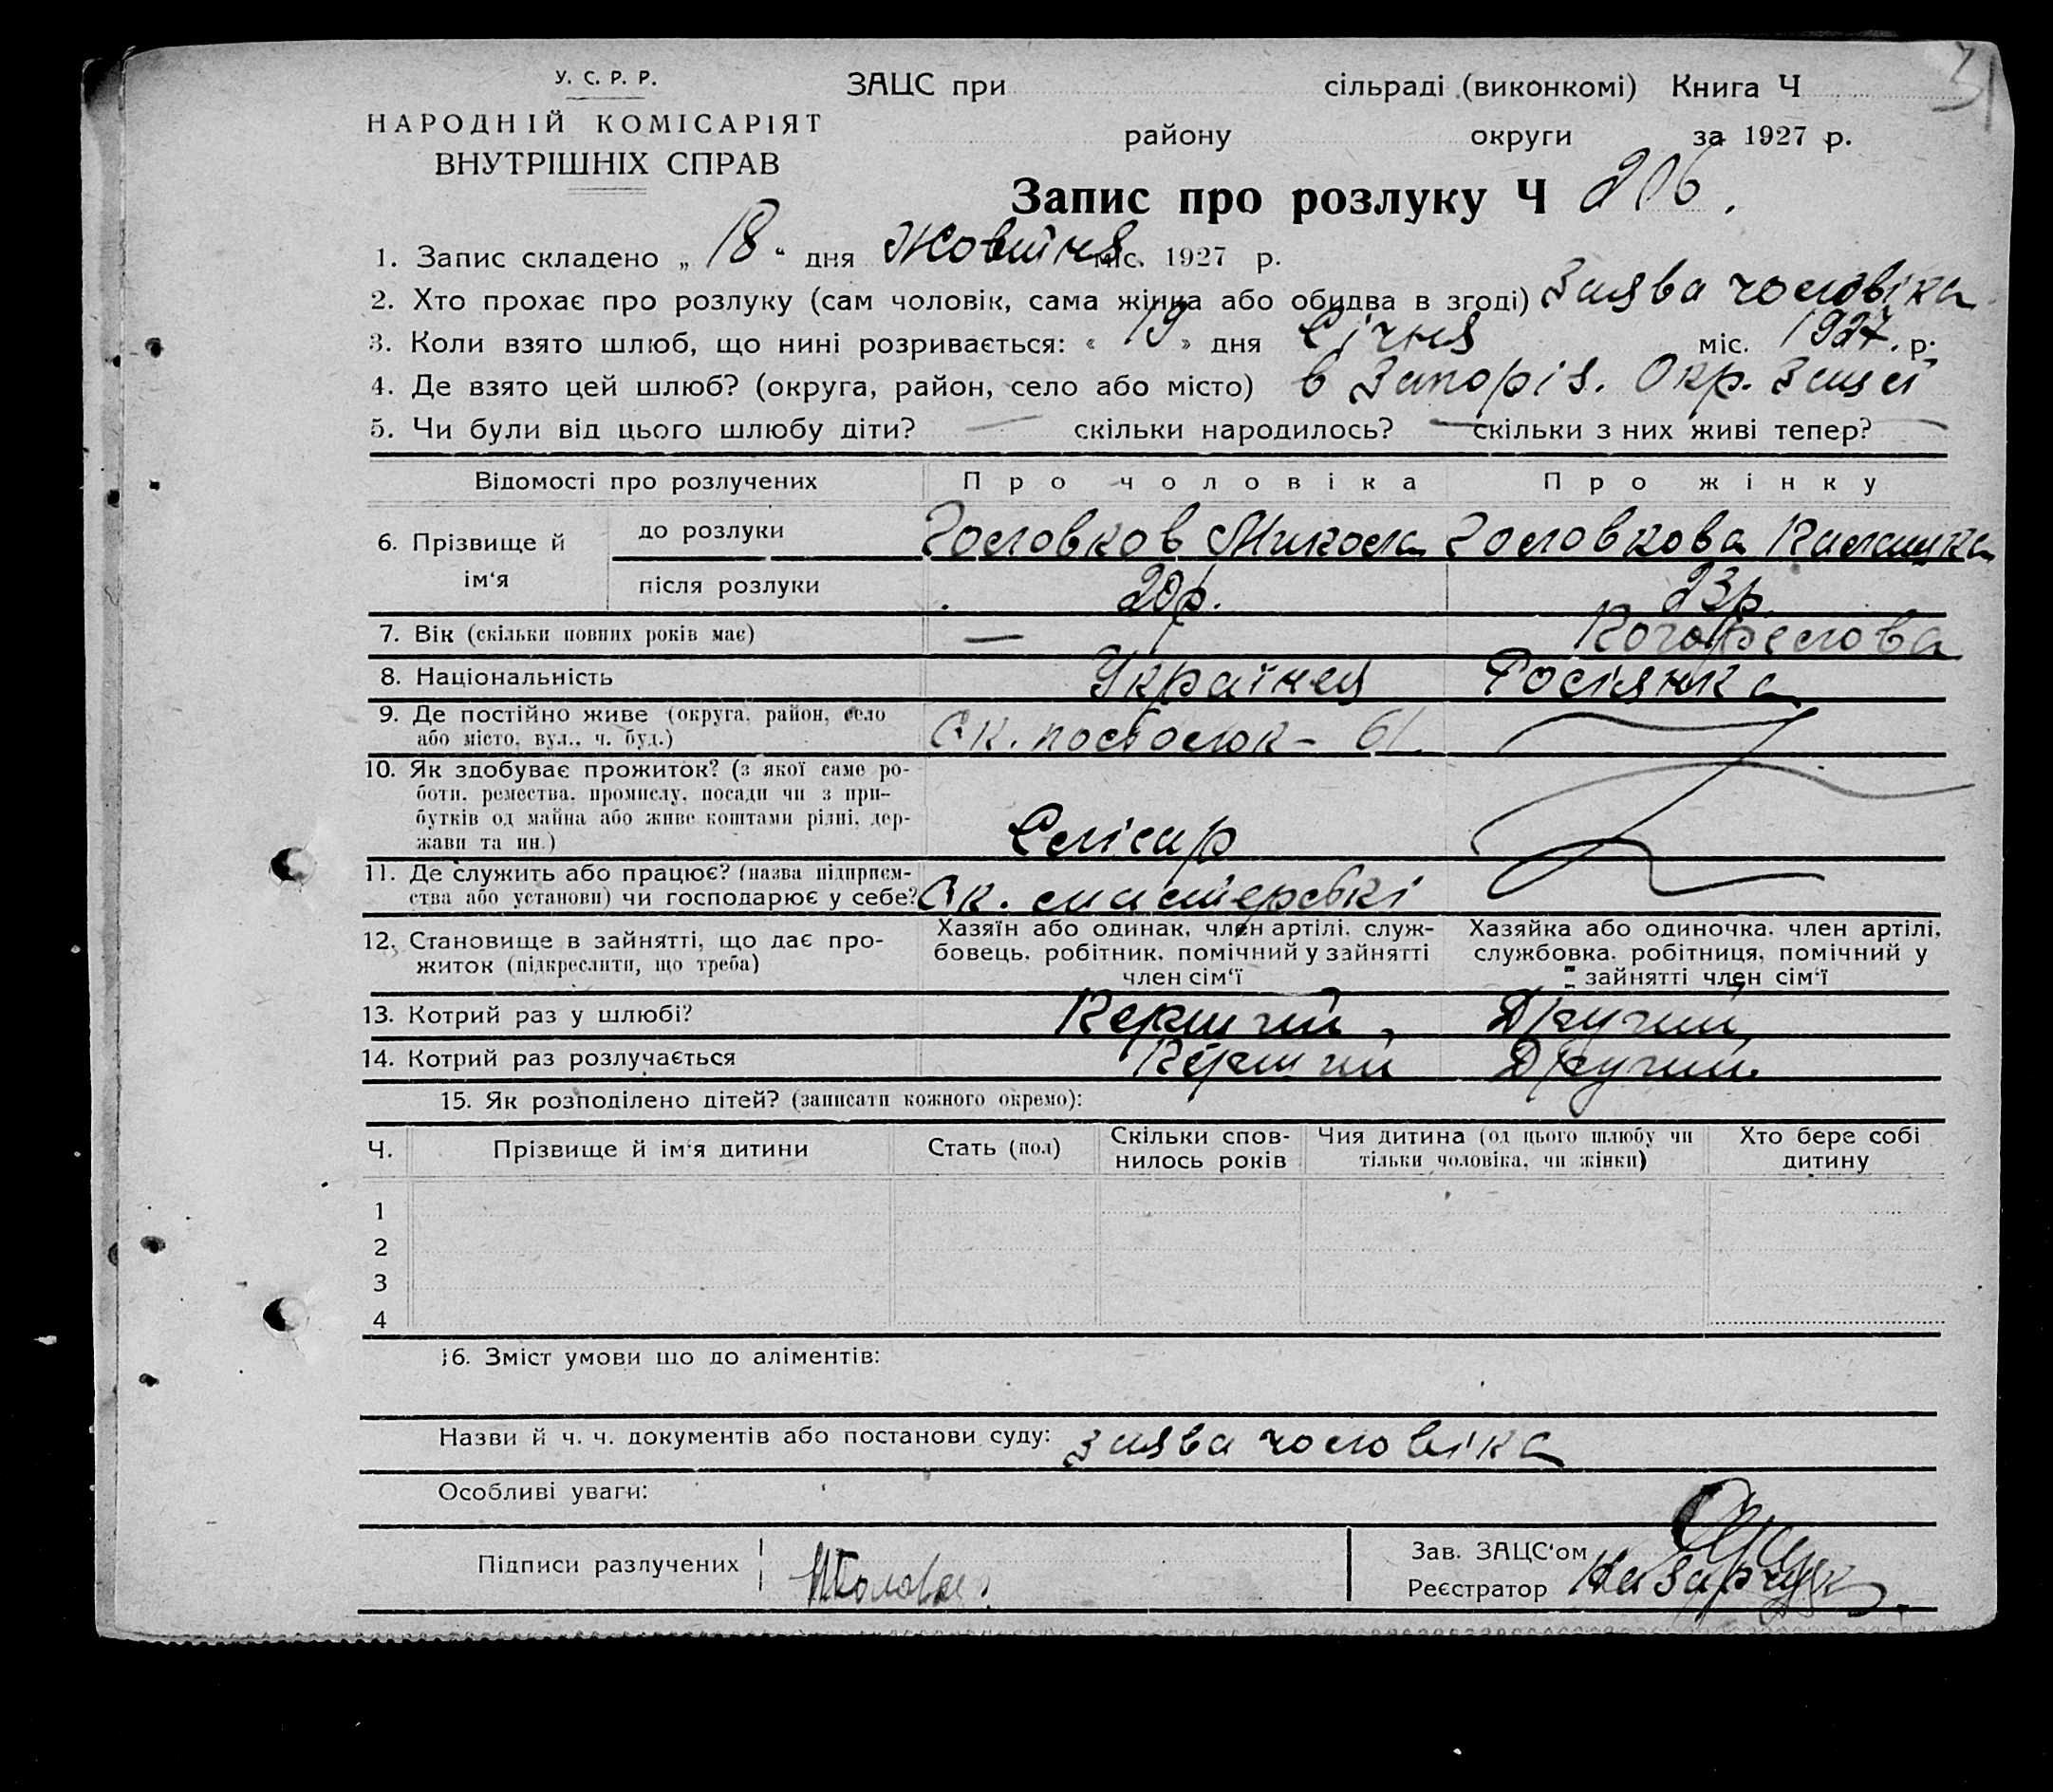 У. С. Р. Р.
НАРОДНІЙ КОМІСАРІЯТ
ВНУТРІШНІХ СПРАВ
ЗАЦС при сільраді (виконкомі) Книга Ч
району округи за 1927 р.
Запис про розлуку Ч 206.
1. Запис складено „ 18 “ дня Жовтня міс. 1927 р.
2. Хто прохає про розлуку (сам чоловік, сама жінка або обидва в згоді) Заява чоловіка
3. Коли взято шлюб, що нині розривається: « 19 » дня Січня міс. 1927. р.
4. Де взято цей шлюб? (округа, район, село або місто) в Запоріз. Окр. Зацсі
5. Чи були від цього шлюбу діти? — скільки народилось? — скільки з них живі тепер? —
Відомості про розлучених Про чоловіка Про жінку
6. Прізвище й ім'я
до розлуки Головков Микола Головкова Калашка
після розлуки 20р. 23р.
7. Вік (скільки повних років має) —
8. Національність Українец Росіянка
9. Де постійно живе (округа, район, село
або місто, вул., ч. буд.) Ск. посьолок – 61.
10. Як здобуває прожиток? (з якої саме ро-
боти, ремества, промислу, посади чи з при-
бутків од майна або живе коштами рідні, дер-
жави та ин.) Слісар
11. Де служить або працює? (назва підприєм-
ства або установи) чи господарює у себе? Ск. мастерські
12. Становище в зайнятті, що дає про-
житок (підкреслити, що треба)
Хазяїн або одинак, член артілі, служ-
бовець, робітник, помічний у зайнятті
член сім'ї
Хазяйка або одиночка, член артілі,
службовка, робітниця, помічний у
зайнятті член сім'ї
13. Котрий раз у шлюбі? Перший Другий
14. Котрий раз розлучається Перший Другий
15. Як розподілено дітей? (записати кожного окремо):
Ч. Прізвище й ім'я дитини Стать (пол) Скільки спов-
нилось років Чия дитина (од цього шлюбу чи
тільки чоловіка, чи жінки) Хто бере собі
дитину
1
2
3
4
16. Зміст умови що до аліментів:
Назви й ч. ч. документів або постанови суду: заява чоловіка
Особливі уваги:
Підписи разлучених
Зав. ЗАЦС'ом
Реєстратор Назарчук